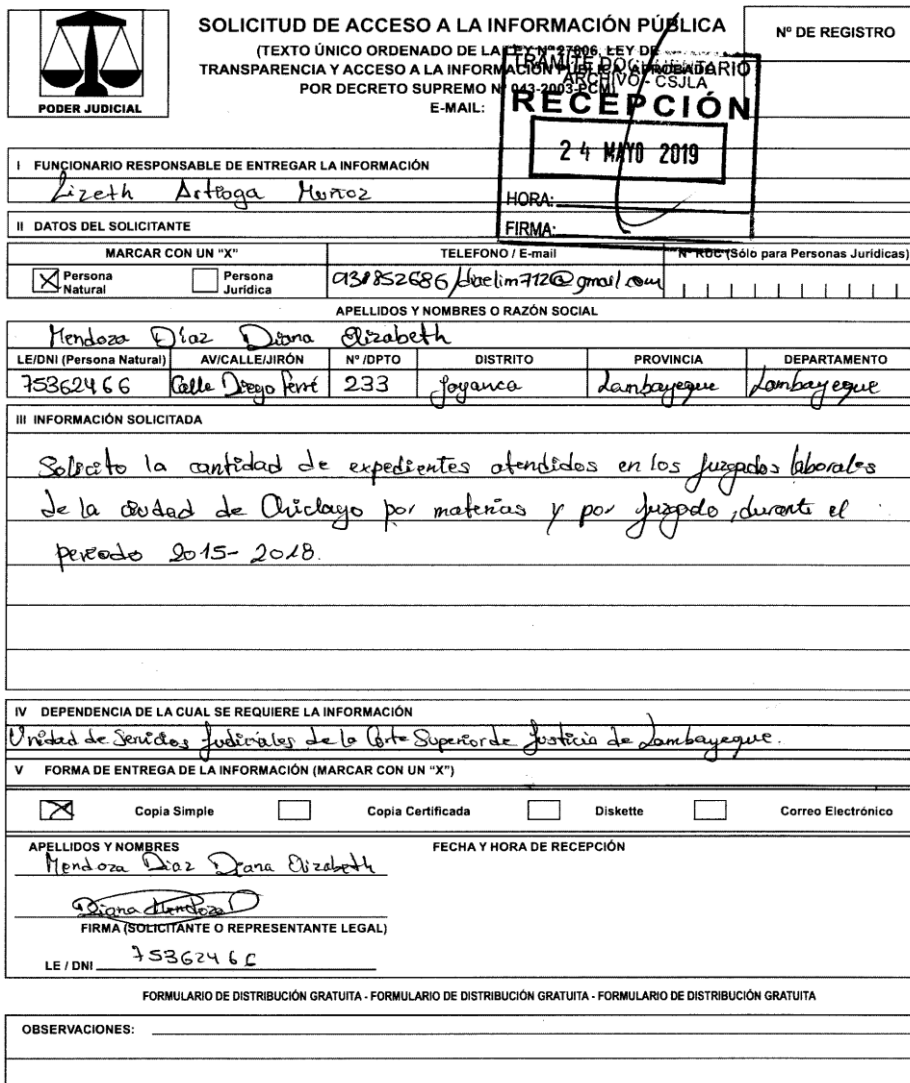 SOLICITUD DE ACCESO A LA INFORMACIÓN PÚBLICA
Nº DE REGISTRO
(TEXTO ÚNICO ORDENADO DE LA LEY Nº 27806, LEY DE
TRANSPARENCIA Y ACCESO A LA INFORMACIÓN PÚBLICA, APROBADA
POR DECRETO SUPREMO Nº 043-2003-PCM)
E-MAIL:
PODER JUDICIAL
TRAMITE DOCUMENTARIO
ARCHIVO - CSJLA
RECEPCIÓN
24 MAYO 2019
HORA:
FIRMA:
I FUNCIONARIO RESPONSABLE DE ENTREGAR LA INFORMACIÓN
Lizeth Muñoz
II DATOS DEL SOLICITANTE
MARCAR CON UN "X" TELEFONO / E-mail Nº RUC (Sólo para Personas Jurídicas)
X Persona Natural Persona Jurídica 931852686/dieelim712@gmail.com
APELLIDOS Y NOMBRES O RAZÓN SOCIAL
Mendoza Díaz Diana Elizabeth
LE/DNI (Persona Natural) AV/CALLE/JIRÓN Nº /DPTO DISTRITO PROVINCIA DEPARTAMENTO
75362466 Calle Diego Ferré 233 Jayanca Lambayeque Lambayeque
III INFORMACIÓN SOLICITADA
Solicito la cantidad de expedientes atendidos en los juzgados laborales
de la ciudad de Chiclayo por materias y por juzgado, durante el
periodo 2015-2018.
IV DEPENDENCIA DE LA CUAL SE REQUIERE LA INFORMACIÓN
Unidad de Servicios Judiciales de la Corte Superior de Justicia de Lambayeque.
V FORMA DE ENTREGA DE LA INFORMACIÓN (MARCAR CON UN "X")
X Copia Simple Copia Certificada Diskette Correo Electrónico
APELLIDOS Y NOMBRES FECHA Y HORA DE RECEPCIÓN
Mendoza Diaz Diana Elizabeth
Diana Mendoza D
FIRMA (SOLICITANTE O REPRESENTANTE LEGAL)
LE / DNI 75362466
FORMULARIO DE DISTRIBUCIÓN GRATUITA - FORMULARIO DE DISTRIBUCIÓN GRATUITA - FORMULARIO DE DISTRIBUCIÓN GRATUITA
OBSERVACIONES: